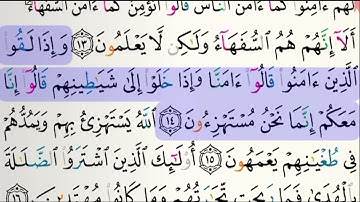 لَهُمْ ءَامِنُوا۟ كَمَآ ءَامَنَ ٱلنَّاسُ قَالُوٓا۟ أَنُؤْمِنُ كَمَآ ءَامَنَ ٱلسُّفَهَآءُ
أَلَآ إِنَّهُمْ هُمُ ٱلسُّفَهَآءُ وَلَٰكِن لَّا يَعْلَمُونَ ١٣ وَإِذَا لَقُوا۟
ٱلَّذِينَ ءَامَنُوا۟ قَالُوٓا۟ ءَامَنَّا وَإِذَا خَلَوْا۟ إِلَىٰ شَيَٰطِينِهِمْ قَالُوٓا۟ إِنَّا
مَعَكُمْ إِنَّمَا نَحْنُ مُسْتَهْزِءُونَ ١٤ ٱللَّهُ يَسْتَهْزِئُ بِهِمْ وَيَمُدُّهُمْ
فِى طُغْيَٰنِهِمْ يَعْمَهُونَ ١٥ أُو۟لَٰٓئِكَ ٱلَّذِينَ ٱشْتَرَوُا۟ ٱلضَّلَٰلَةَ
بِٱلْهُدَىٰ فَمَا رَبِحَت تِّجَٰرَتُهُمْ وَمَا كَانُوا۟ مُهْتَدِينَ ١٦